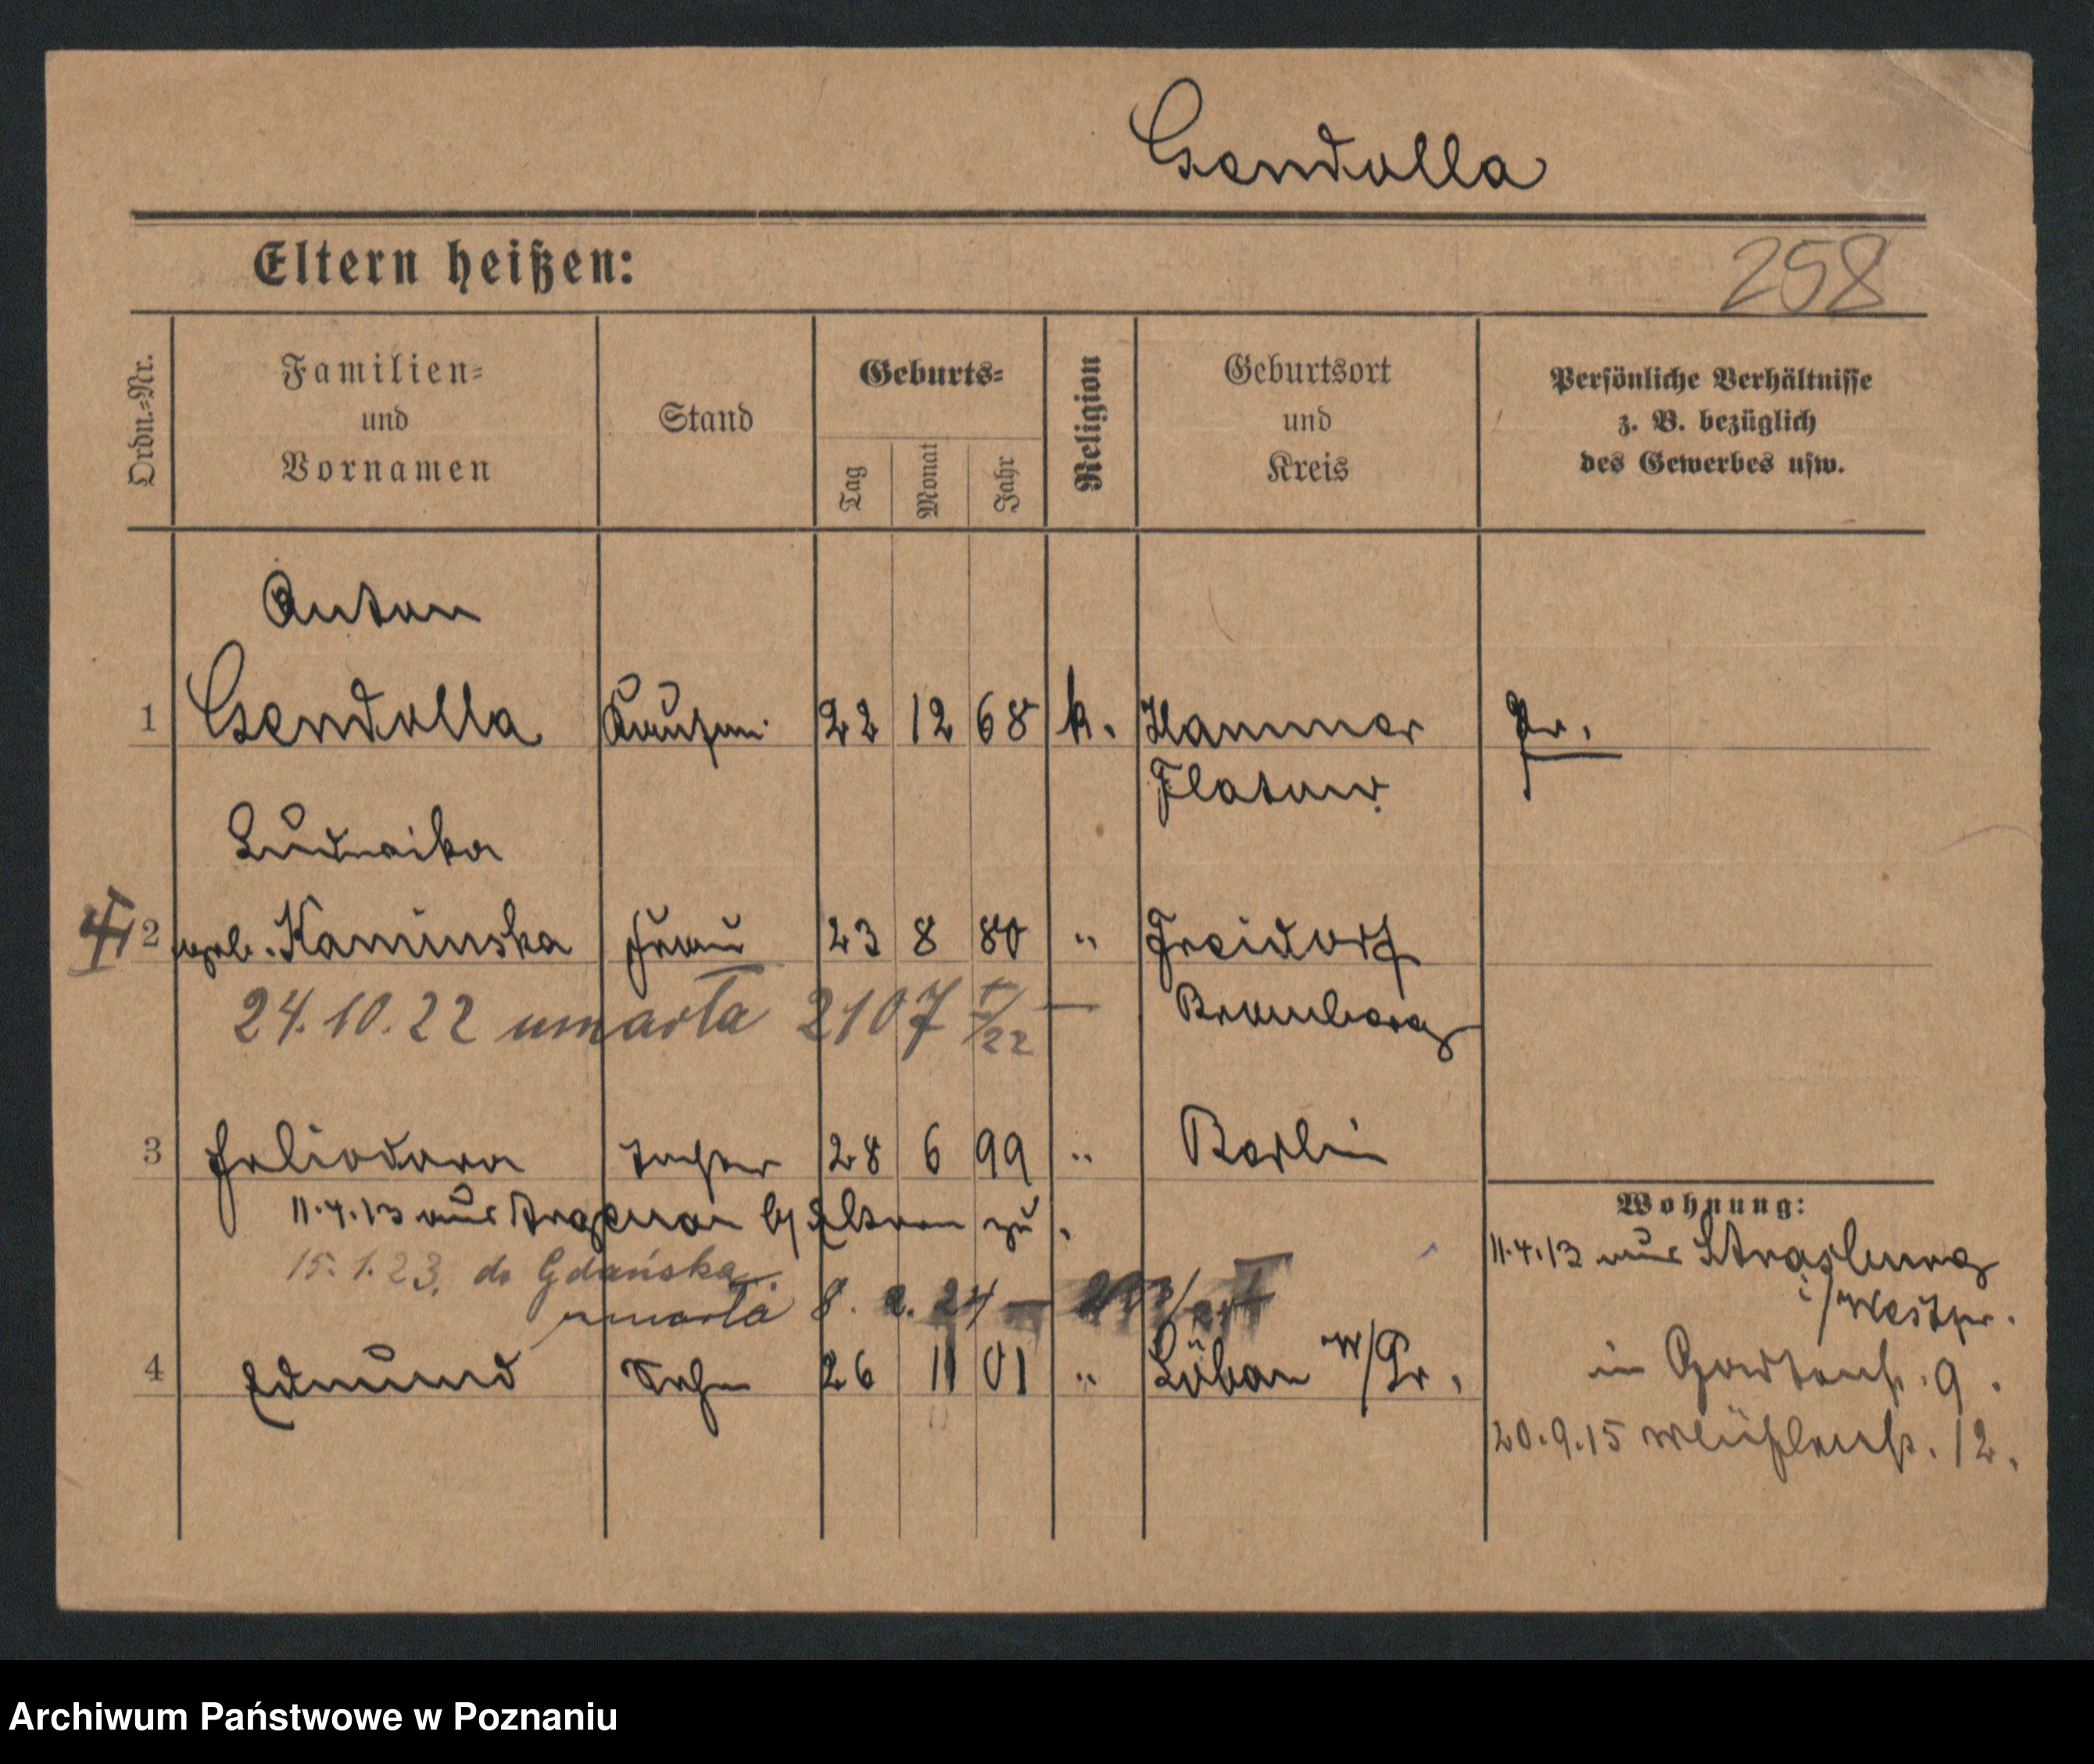 Gendolla
Eltern heißen:
258
Ordn.-Nr.
Familien-
und
Vornamen
Stand
Geburts-
Tag
Monat
Jahr
Religion
Geburtsort
und
Kreis
Persönliche Verhältnisse
z. B. bezüglich
des Gewerbes usw.
Anton
1 Gendolla Kaufm. 22 12 68 k. Hammer Pr.
Flatow
Ludwika
2 geb. Kaminska Frau 23 8 80 " Freidorf
24.10.22 umarła 2107 /22
Bromberg
3 Heliodora Tochter 28 6 99 " Berlin
11.4.13 aus Argenau b/ Eltern zu.
15.1.23. do Gdańska
umarła 8. 2. 24
4 Edmund Sohn 26 11 01 " Löbau W/Pr.
Wohnung:
11.4.13 aus Strasburg
i/Westpr.
in Gartenstr. 9.
20.9.15 Mühlenstr. 12.
Archiwum Państwowe w Poznaniu